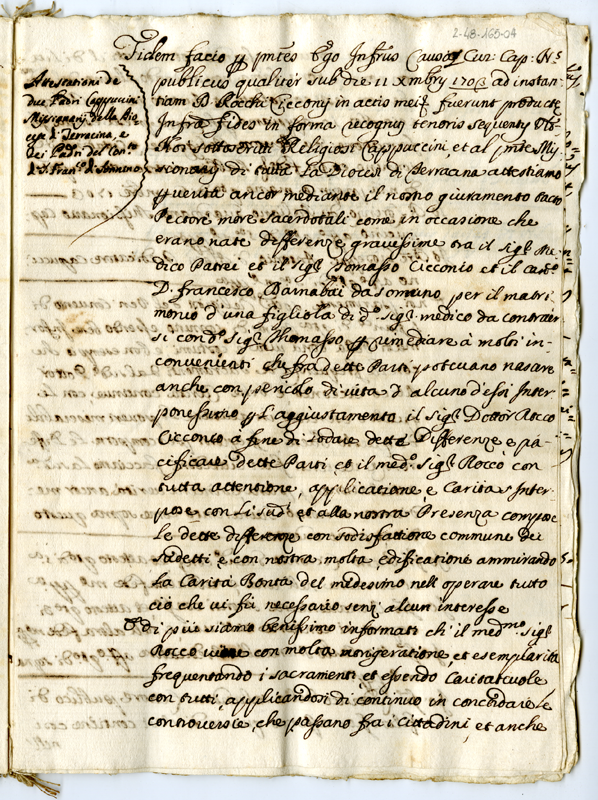 2-48-165-04
Attestationi de
due Padri Cappuccini
Missionarij della Dio
cesi di Terracina, e
dei Padri del Con.to
di S. Fran.co di Sonnino
Fidem facio
publicus qualiter sub die 11 Xmbris 1703 ad instan
tiam D. Rocchi Cicconij in actis meis fuerunt producte
Infra fides in forma recognit tenoris sequentis
Noi sottoscritti Religiosi Cappuccini, et al pnte Mis
sionarij di tutta la Diocesi di Terracina attestiamo
verità ancor mediante il nostro giuramento tacto
Pectore more sacerdotali come in occasione che
erano nate differenze gravissime tra il sig.r Me
dico Patrei et il sig.r Tomasso Cicconio et il
D. Francesco Barnabai da Sonnino per il matri
monio d'una figliola di d.o sig.r medico da contraer
si con d.o sig.r Thomasso rimediare à molti in
convenienti che fra dette Parti potevano nascere
anche con pericolo di vita d'alcuno d'essi Inter
ponessimo l'aggiustamento il sig.r Dottor Rocco
Cicconio a fine di sodare dette Differenze e pa
cificare dette Parti et il med.o sig.r Rocco con
tutta attentione, applicatione e Carità s'Inter
pose con li sud.i et alla nostra Presenza compose
le dette differenze con sodisfattione commune de
sudetti e con nostra molta edificatione ammirando
la Carità Bontà del medesimo nell'operare tutto
ciò che vi fù necessario senz'alcun interesse
di più siamo benissimo informati ch'il med.mo sig.r
Rocco vive con molta morigeratione, et esemplarità
frequentando i sacramenti et essendo Caritatevole
con tutti, applicandosi di continuo in concordare le
controversie, che passano fra i Cittadini, et anche